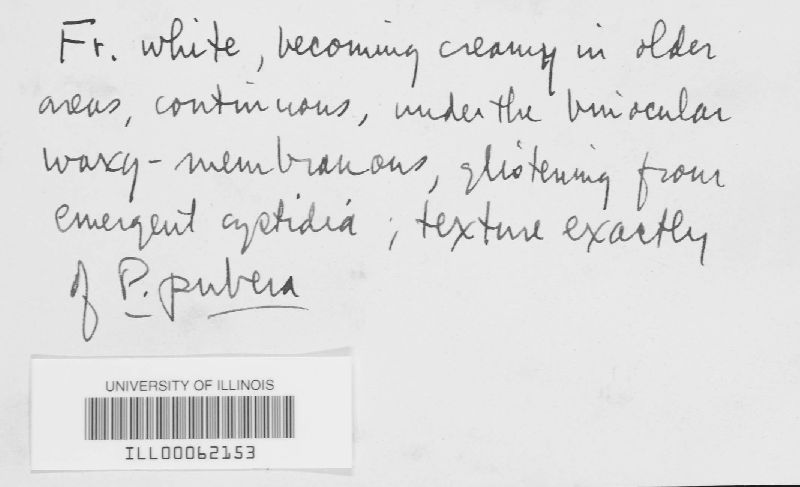 Fr. white, becoming creamy in older
areas, continuous, under the binocular
waxy-membranous, glistening from
emergent cystidia; texture exactly
of P. pubera
UNIVERSITY OF ILLINOIS
ILL00062153